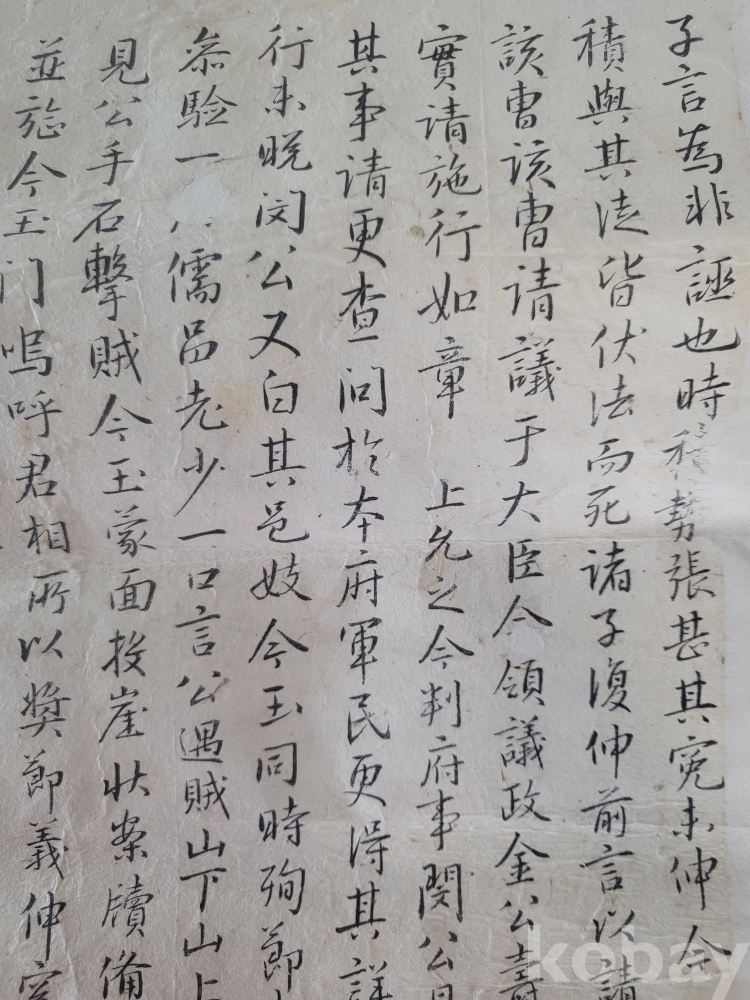 子言為非誣也時積勢張甚其寃未伸今
積與其徒皆伏法而死諸子復伸前言以請
該曹該曹請議于大臣今領議政金公壽
實請施行如章 上允之今判府事閔公
其事請更查问於本府軍民更得其詳
行未晩闵公又白其邑妓今玉同時殉節
叅驗一 儒品老少一口言公遇賊山下山上
見公手石擊賊今玉蒙面投崖狀案牘備
並旌今玉门嗚呼君相所以奬節義伸寃
kobay